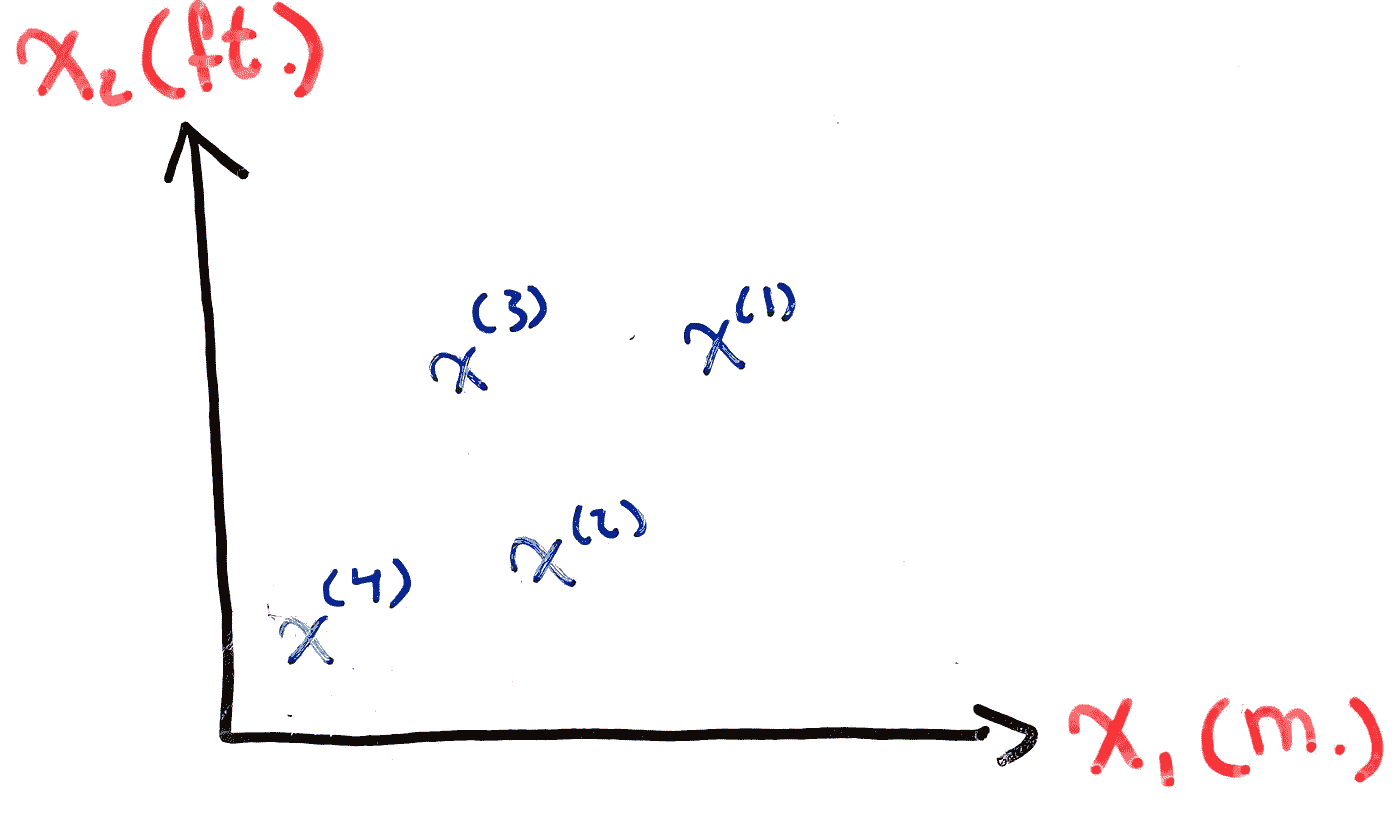 x₂ (ft.)
x⁽³⁾ x⁽¹⁾
x⁽²⁾
x⁽⁴⁾
x₁ (m.)